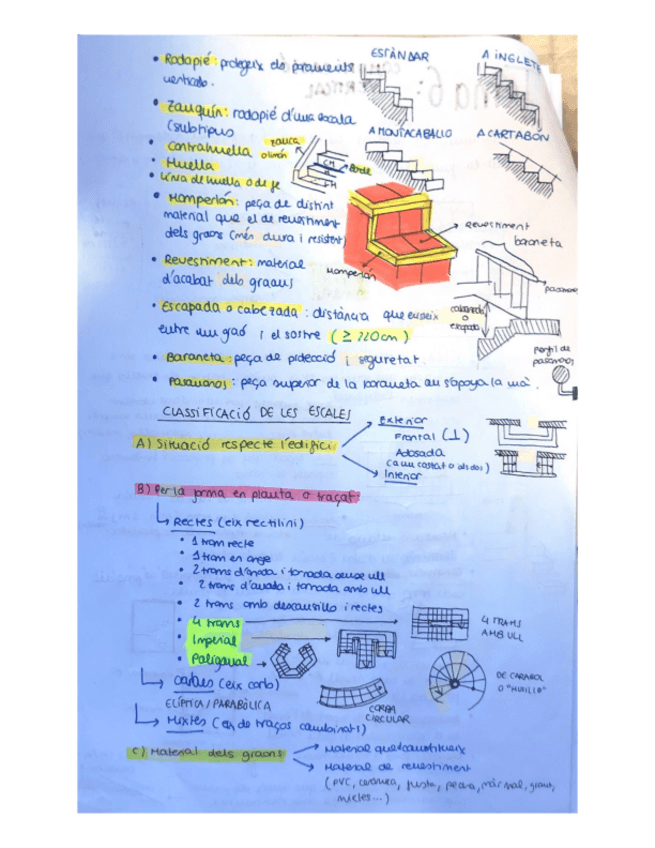 • Rodapié: protegeix els paraments
verticals.
• Zanquín: rodapié d'una escala
(subtipus
• Contrahuella
• Huella
• Línea de huella o de
• Mamperlán: peça de distint
material que el de revestiment
dels graons (més dura i resistent)
• Revestiment: material
d'acabat dels graons
• Escapada o cabezada: distància que
entre un i el sostre (≥ 220cm)
• Baraneta: peça de protecció i seguretat.
• Pasamanos: peça superior de la baraneta on s'apoya la mà.
ESTÀNDAR
A INGLETE
A MONTACABALLO
A CARTABÓN
zanca
o limón
CM
H
Borde
Revestiment
Mamperlán
baraneta
cabezada
o
escapada
perfil de
pasamanos
CLASSIFICACIÓ DE LES ESCALES
A) Situació respecte l'edifici
Exterior
Frontal (⊥)
Adosada
(a un costat o als dos)
Interior
B) Per la forma en planta o traçat
Rectes (eix rectilini)
• 1 tram recte
• 1 tram en
• 2 trams d'anada i tornada sense ull
2 trams d'anada i tornada amb ull
• 2 trams amb descansillo i rectes
• 4 trams
• Imperial
• Poligonal
4 TRAMS
AMB ULL
Corbes (eix corb)
ELÍPTICA/PARABÒLICA
CORBA
CIRCULAR
DE CARACOL
O "HUSILLO"
Mixtes (eix de traços combinats)
C) Material dels graons
Material que constitueix
Material de revestiment
(PVC, ceràmica, fusta, pedra, màrmol,
mixtes...)